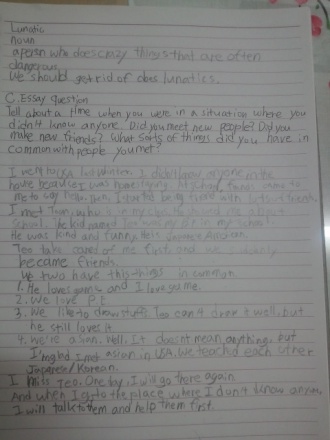 Lunatic
noun
a person who does crazy things that are often
dangerous.
We should get rid of does lunatics.
C. Essay question
Tell about a time when you were in a situation where you
didn't know anyone. Did you meet new people? Did you
make new friends? What sorts of things did you have in
common with people you met?
I went to USA last I didn't know anyone in the
because I was At school, came to
me to say Then, I started being friend with lots of friends.
I met who is in my class. He me about
school. He in my school.
He was kind and funny. He is Asian.
Teo take care of me first, and we suddenly
became friends.
We two have this things in common.
1. He loves game and I love game.
2. We love P.E.
3. We like to draw stuff. Teo can't draw it well, but
he still loves it.
4. We're asian. Well, it doesn't mean anything, but
I'm glad I met asian in USA. We teached each other
Japanese/Korean.
I miss teo. One day, I will go there again.
And when I go to the place where I don't know anyone,
I will talk to them and help them first.